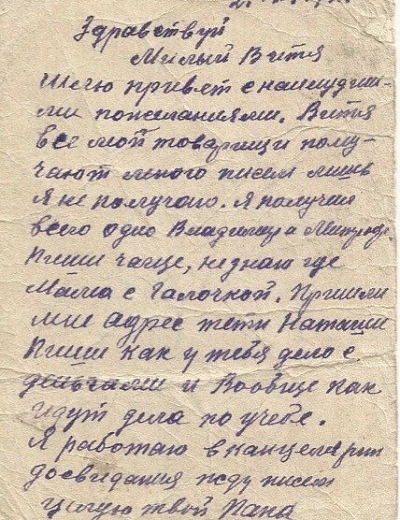 Здравствуй
Милый Витя
Шлю привет с наилудши-
ми пожеланиями. Витя
все мои товарищи полу-
чают много писем лишь
я не получаю. Я получил
всего одно Владимира
Пиши чаще, незнаю где
Мама с Галочкой. Пришли
мне адрес тети Наташи
Пиши как у тебя дело с
и вообще как
идут дела по учебе.
Я работаю в канцелярии
досвидания жду писем
целую твой Папа